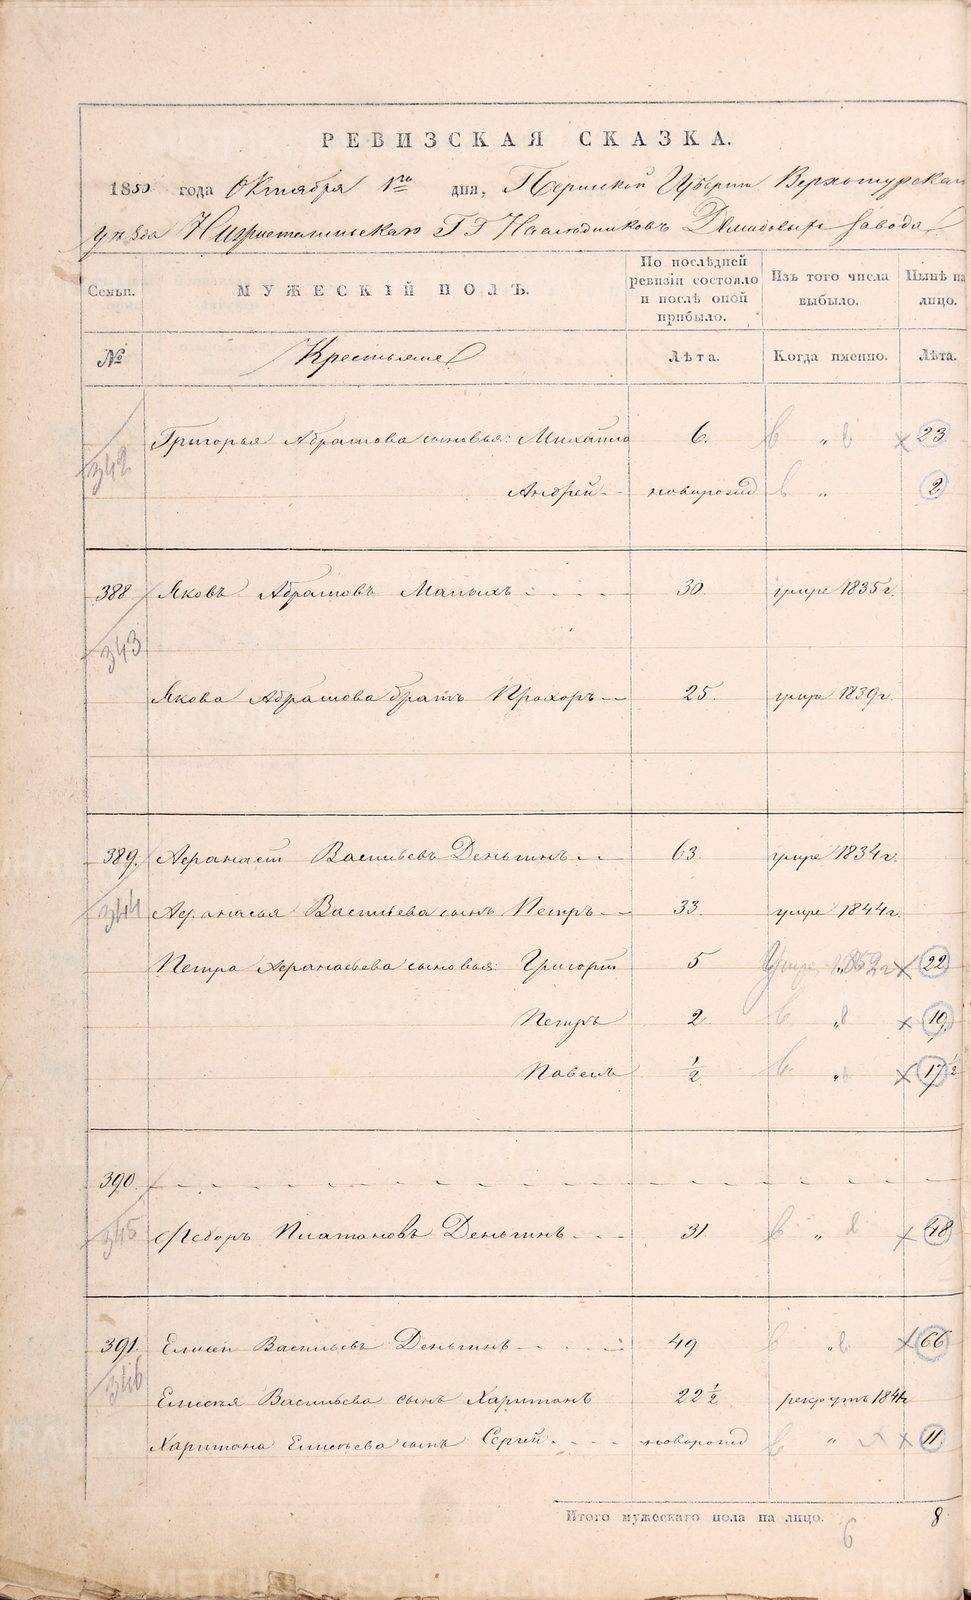 РЕВИЗСКАЯ СКАЗКА.
1850 года Октября 1го дня, Пермской Губерніи Верхотурскаго
уѣзда Нижнетагильскаго Г Г Наслѣдниковъ Демидовыхъ Завода
Семьи. МУЖЕСКІЙ ПОЛЪ. По послѣдней ревизіи состояло и послѣ оной прибыло. Изъ того числа выбыло. Нынѣ на лицо.
№ Крестьяне Лѣта. Когда именно. Лѣта.
342 Григорья Абрамова сыновья: Михайло 6. „ 23
Андрей новорожд „ 2
388 Яковъ Абрамовъ 30. умре 1835 г.
343
Якова Абрамова братъ Прохоръ 25. умре 1839 г.
389. Афанасій Васильевъ Деньгинъ 63. умре 1834 г.
344 Афанасья Васильева сынъ Петръ 33. умре 1844 г.
Петра Афанасьева сыновья: Григорій 5 Умре 1852 г 22
Петръ 2. „ 19
Павелъ 1/2 „ 17 1/2
390.
345 Федоръ Платоновъ Деньгинъ 31. „ 48
391. Елисей Васильевъ Деньгинъ 49 „ 66
346 Елисея Васильева сынъ Харитонъ 22 1/2 рекрутъ 1841 г
Харитона Елисѣева сынъ Сергей новорожд „ 11.
Итого мужескаго пола на лицо. 8
6
METRIKI.GASO-URAL.RU